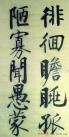 徘徊瞻眺
孤陋寡聞愚蒙